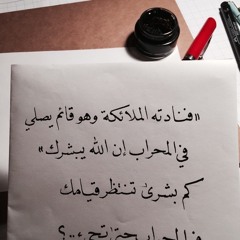 «فنادته الملائكة وهو قائم يصلي
في المحراب إن الله يبشرك»
كم بشرى تنتظر قيامك
في المحراب حتى تجيء..؟